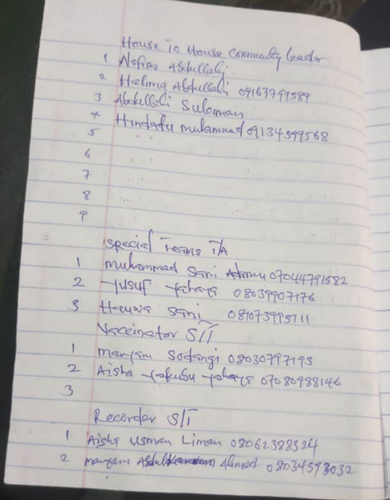 House to House Community leader
1 Nafisa Abdullahi
2 Halima Abdullahi 09163791589
3 Abdullahi Suleman
4 Hindatu muhammad 09134599568
5
6
7
8
9
Special Teams T/A
1 muhammad Sani Adamu 07044791582
2 Yusuf Yahaya 08039907176
3 Hauwa Sani 08107399511
Vaccinator S/T
1 maryam Sodangi 08030797193
2 Aisha Yakubu Yahaya 07080988146
3
Recorder S/T
1 Aisha Usman Liman 08062388324
2 maryam Ahmad 08034593032